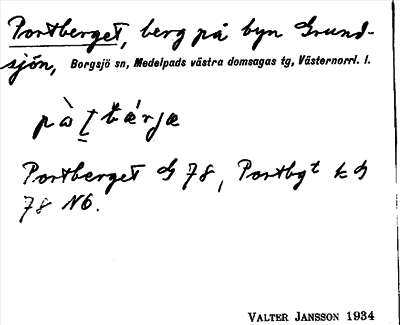 Portberget, berg på byn Grund-
sjön, Borgsjö sn, Medelpads västra domsagas tg, Västernorrl. l.
Portberget G 78, Portbgt k G
78 NÖ.
VALTER JANSSON 1934